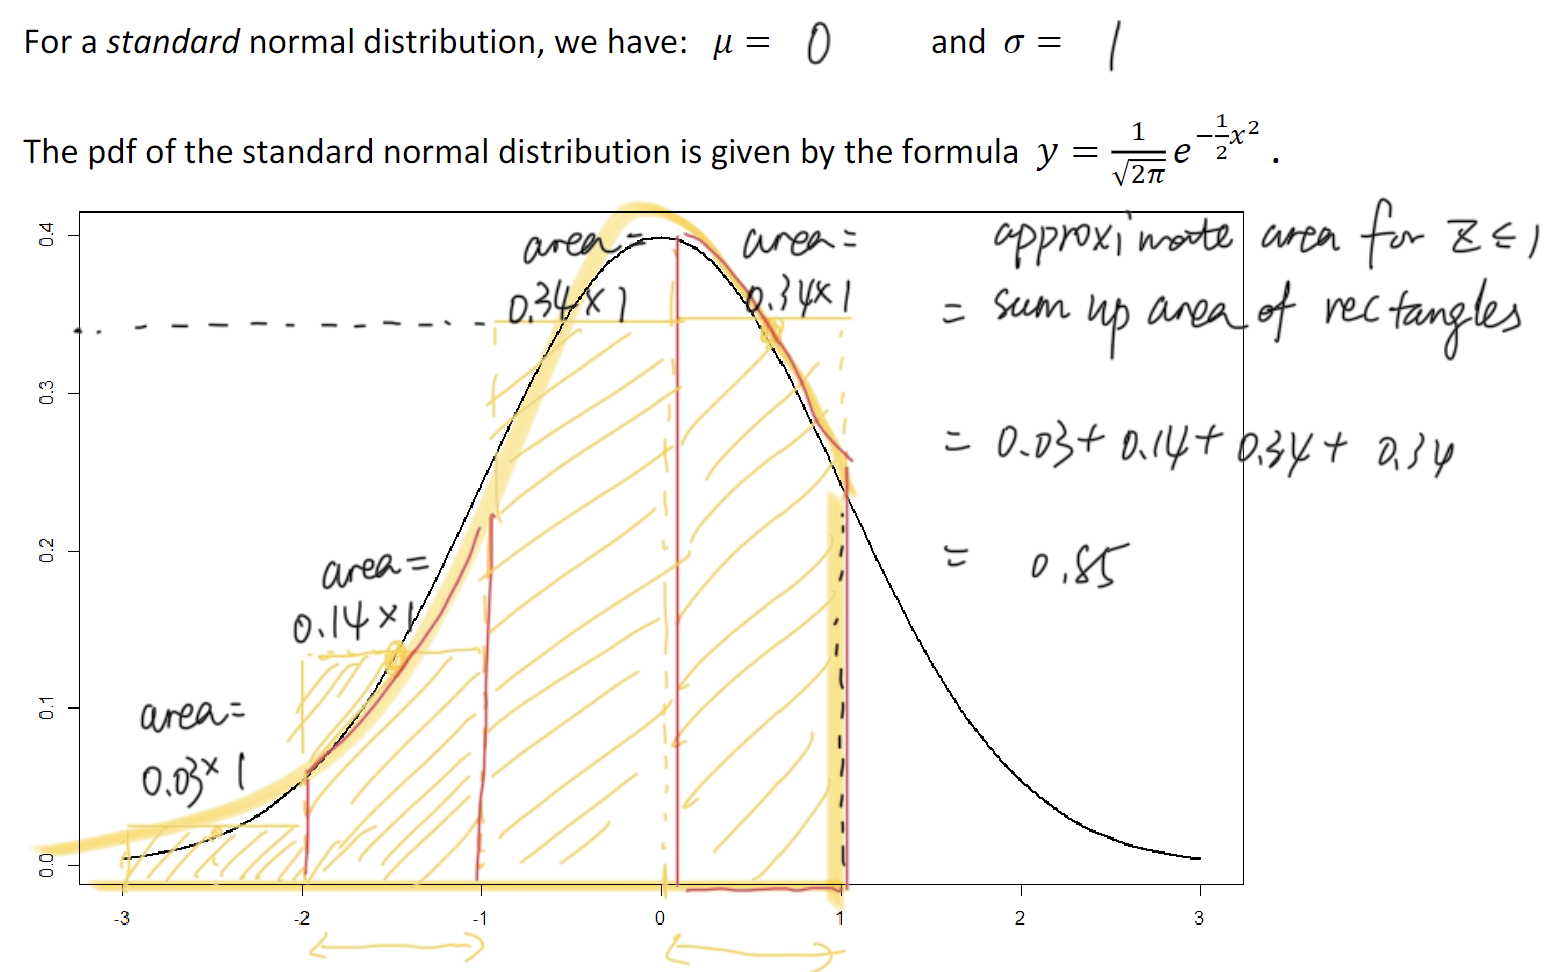 For a standard normal distribution, we have: μ = 0 and σ = 1
The pdf of the standard normal distribution is given by the formula y = \frac{1}{\sqrt{2π}} e^{-\frac{1}{2}x^2} .
0.4
0.3
0.2
0.1
0.0
area =
0.34 × 1
area =
0.34 × 1
area =
0.14 × 1
area =
0.03 × 1
approximate area for Z ≤ 1
= sum up area of rectangles
= 0.03 + 0.14 + 0.34 + 0.34
= 0.85
-3 -2 -1 0 1 2 3